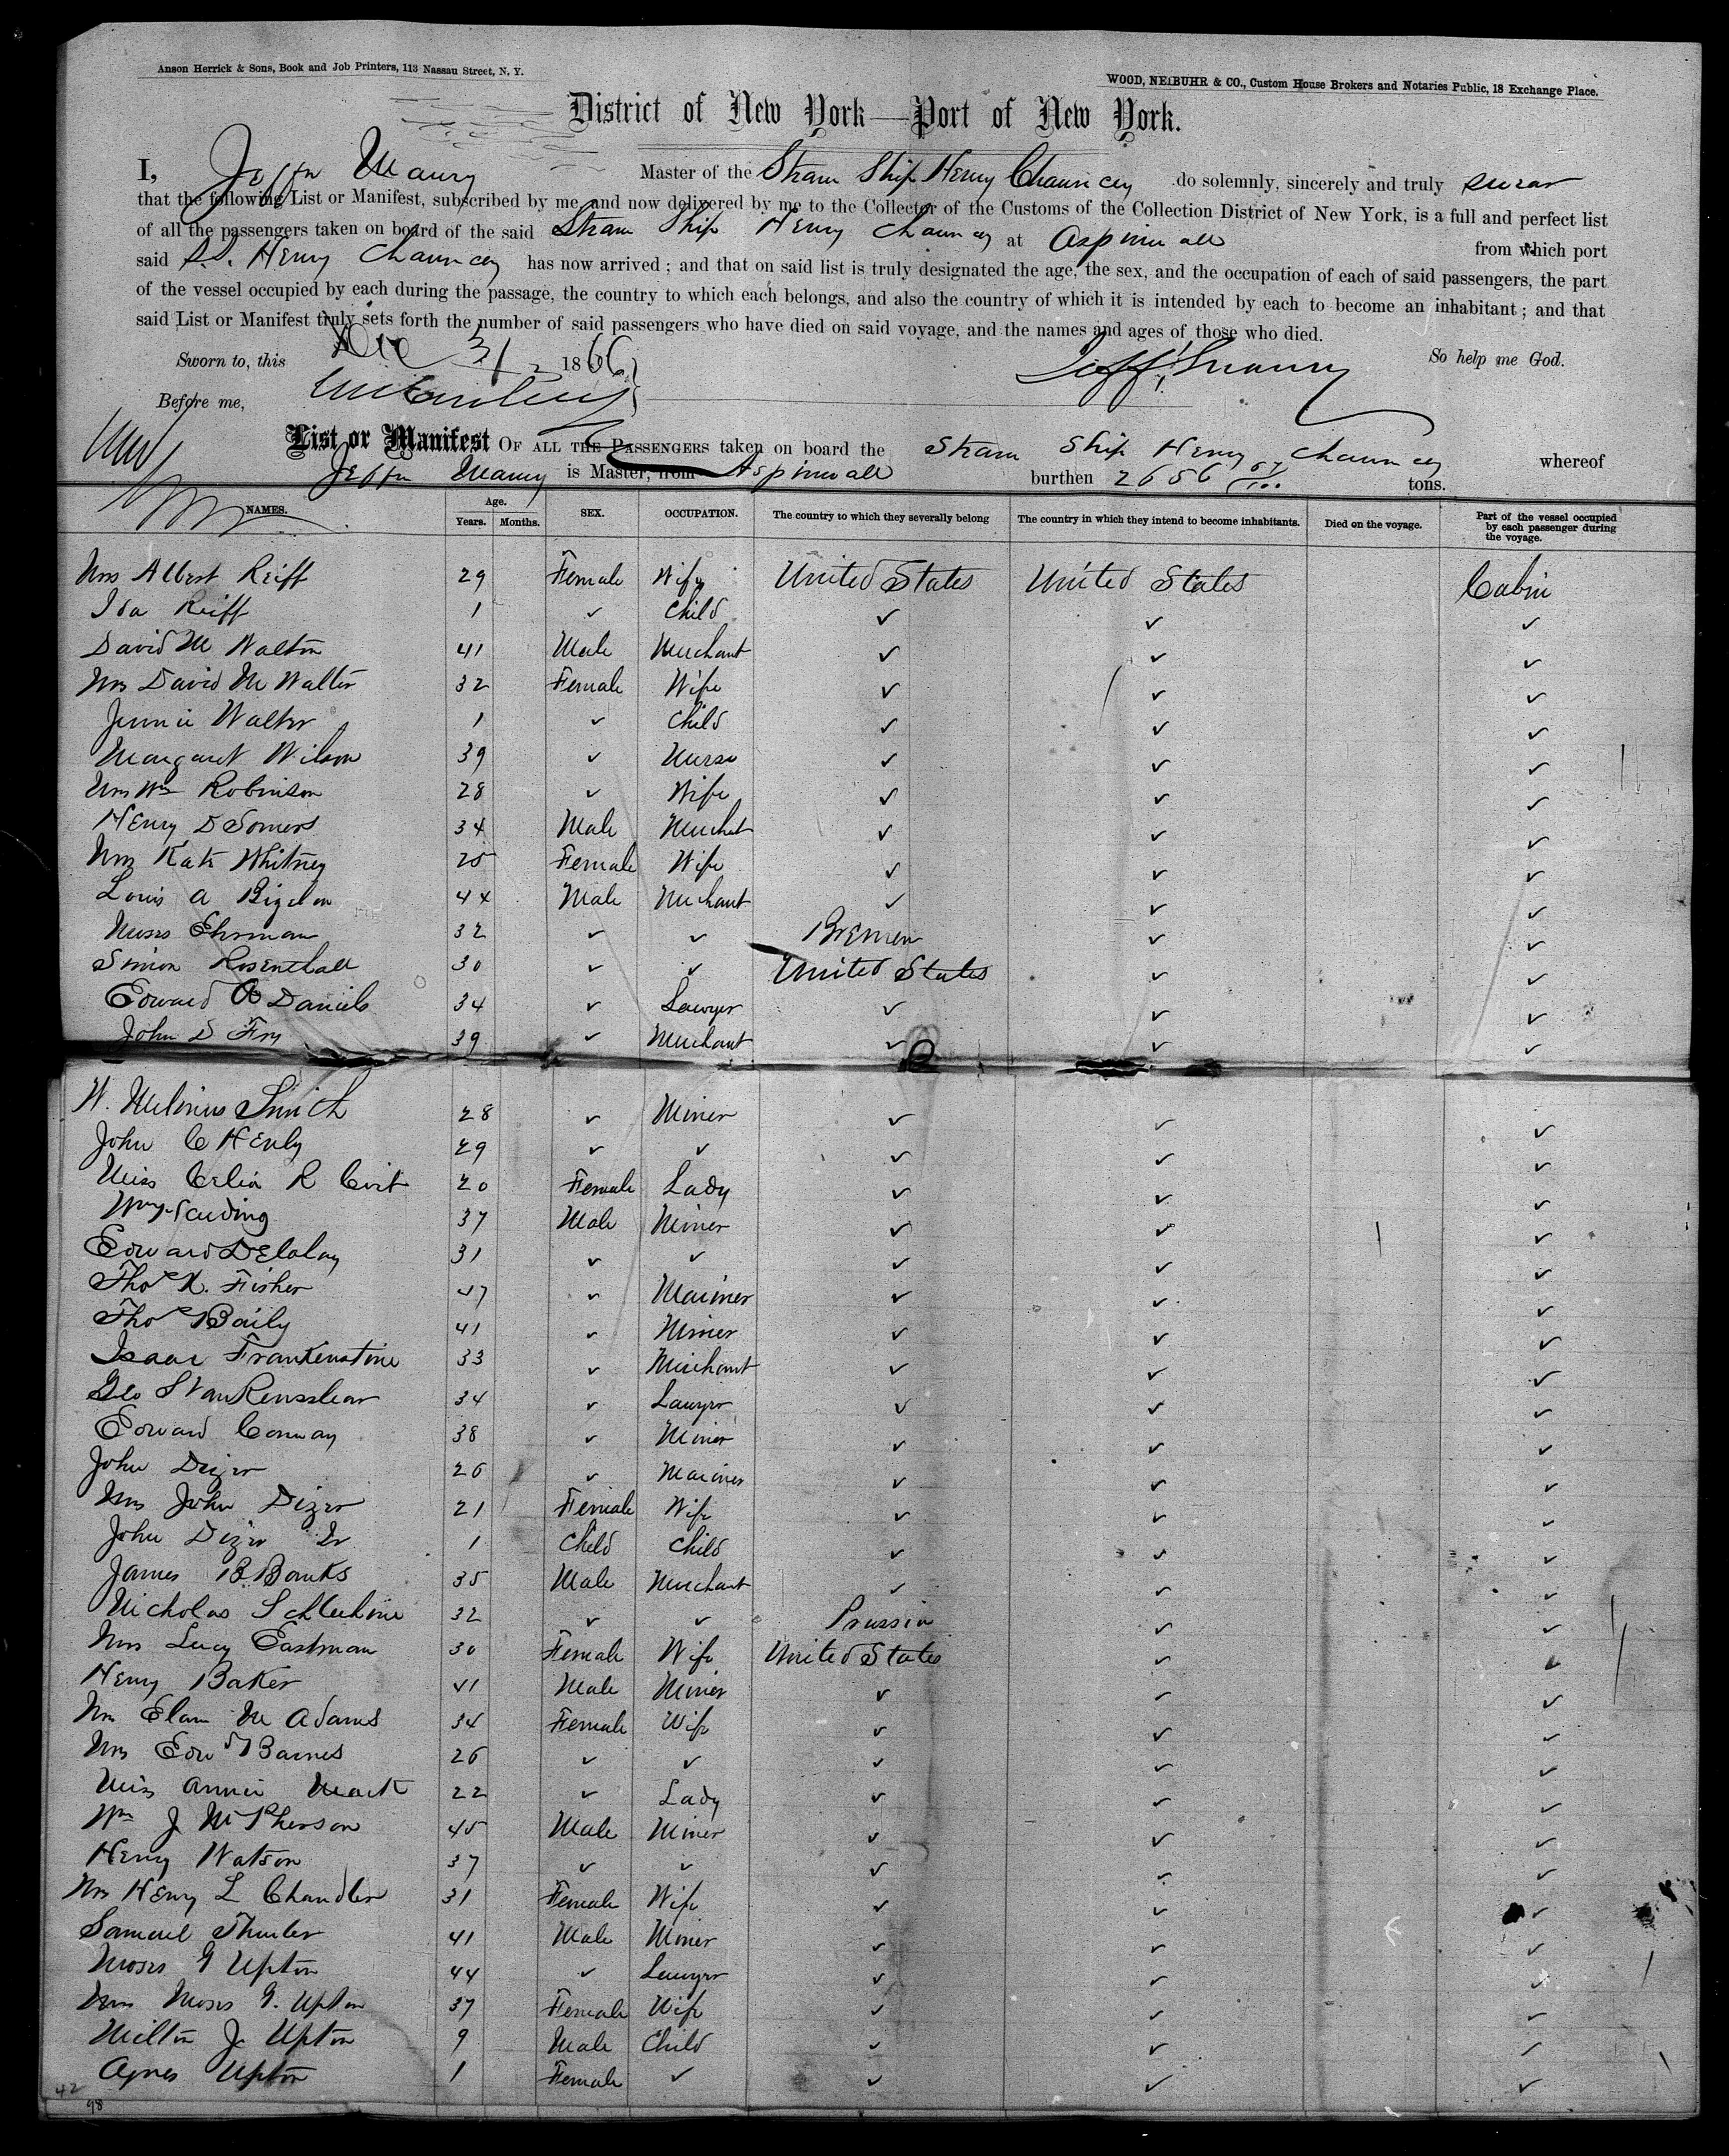 Anson Herrick & Sons, Book and Job Printers, 113 Nassau Street, N. Y.
WOOD, NEIBUHR & CO., Custom House Brokers and Notaries Public, 18 Exchange Place.
District of New York—Port of New York.
I, Jeffn Maury Master of the Steam Ship Henry Chauncey do solemnly, sincerely and truly swear
that the following List or Manifest, subscribed by me, and now delivered by me to the Collector of the Customs of the Collection District of New York, is a full and perfect list
of all the passengers taken on board of the said Steam Ship Henry Chauncey at Aspinwall from which port
said S.S. Henry Chauncey has now arrived; and that on said list is truly designated the age, the sex, and the occupation of each of said passengers, the part
of the vessel occupied by each during the passage, the country to which each belongs, and also the country of which it is intended by each to become an inhabitant; and that
said List or Manifest truly sets forth the number of said passengers who have died on said voyage, and the names and ages of those who died.
Sworn to, this Dec 31 1866 Jeff. Maury So help me God.
Before me,
List or Manifest OF ALL THE PASSENGERS taken on board the Steam Ship Henry Chauncey whereof
Jeffn Maury is Master, from Aspinwall burthen 2656 tons.
NAMES. Age. Years. Months. SEX. OCCUPATION. The country to which they severally belong The country in which they intend to become inhabitants. Died on the voyage. Part of the vessel occupied by each passenger during the voyage.
Mrs Albert Reiff 29 Female Wife United States United States Cabin
Ida Reiff 1 ✓ Child ✓ ✓ ✓
David M Walton 41 Male Merchant ✓ ✓ ✓
Mrs David M Walter 32 Female Wife ✓ ✓ ✓
Jennie Walter 1 ✓ Child ✓ ✓ ✓
Margaret Wilson 39 ✓ Nurse ✓ ✓ ✓
Mrs Wm Robinson 28 ✓ Wife ✓ ✓ ✓
Henry D Somers 34 Male Merchat ✓ ✓ ✓
Mrs Kate Whitney 25 Female Wife ✓ ✓ ✓
Louis A Bigelow 44 Male Merchant ✓ ✓ ✓
Moses Ehrman 32 ✓ ✓ Bremen ✓ ✓
Simon Rosenthall 30 ✓ ✓ United States ✓ ✓
Edward A Daniels 34 ✓ Lawyer ✓ ✓ ✓
John D Fry 39 ✓ Merchant ✓ ✓ ✓
W. Smith 28 ✓ Miner ✓ ✓ ✓
John C Henly 29 ✓ ✓ ✓ ✓ ✓
Miss Celia R 20 Female Lady ✓ ✓ ✓
Wm 37 Male Miner ✓ ✓ ✓
Edward Delalay 31 ✓ ✓ ✓ ✓ ✓
Thos K. Fisher 47 ✓ Mariner ✓ ✓ ✓
Thos Baily 41 ✓ Miner ✓ ✓ ✓
Isaac Frankenstine 33 ✓ Merchant ✓ ✓ ✓
Geo S Van Rensslear 34 ✓ Lawyer ✓ ✓ ✓
Edward Conway 38 ✓ Miner ✓ ✓ ✓
John Dizer 26 ✓ Mariner ✓ ✓ ✓
Mrs John Dizer 21 Female Wife ✓ ✓ ✓
John Dizer Jr 1 Child Child ✓ ✓ ✓
James B Banks 35 Male Merchant ✓ ✓ ✓
Nicholas 32 ✓ ✓ Prussia ✓ ✓
Mrs Lucy Eastman 30 Female Wife United States ✓ ✓
Henry Baker 41 Male Miner ✓ ✓ ✓
Mrs Elam M Adams 34 Female Wife ✓ ✓ ✓
Mrs Edwd Barnes 26 ✓ ✓ ✓ ✓ ✓
Miss Annie Mack 22 ✓ Lady ✓ ✓ ✓
Wm J McPherson 45 Male Miner ✓ ✓ ✓
Henry Watson 37 ✓ ✓ ✓ ✓ ✓
Mrs Henry L Chandler 31 Female Wife ✓ ✓ ✓
Samuel Thurler 41 Male Miner ✓ ✓ ✓
Moses G Upton 44 ✓ Lawyer ✓ ✓ ✓
Mrs Moses G. Upton 37 Female Wife ✓ ✓ ✓
Milton J Upton 9 Male Child ✓ ✓ ✓
Agnes Upton 1 Female ✓ ✓ ✓ ✓
42
98